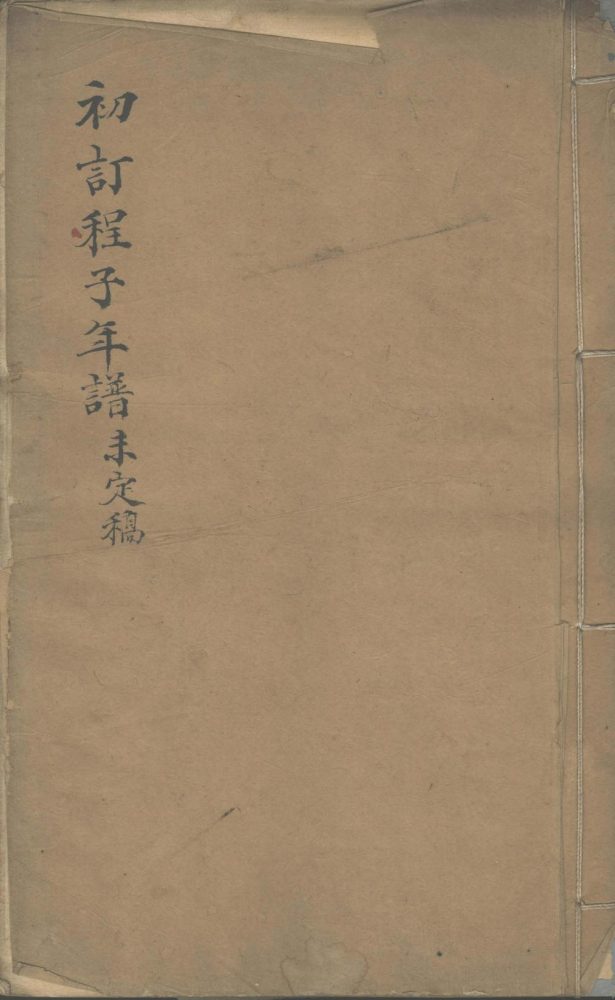 初訂程子年譜未定稿